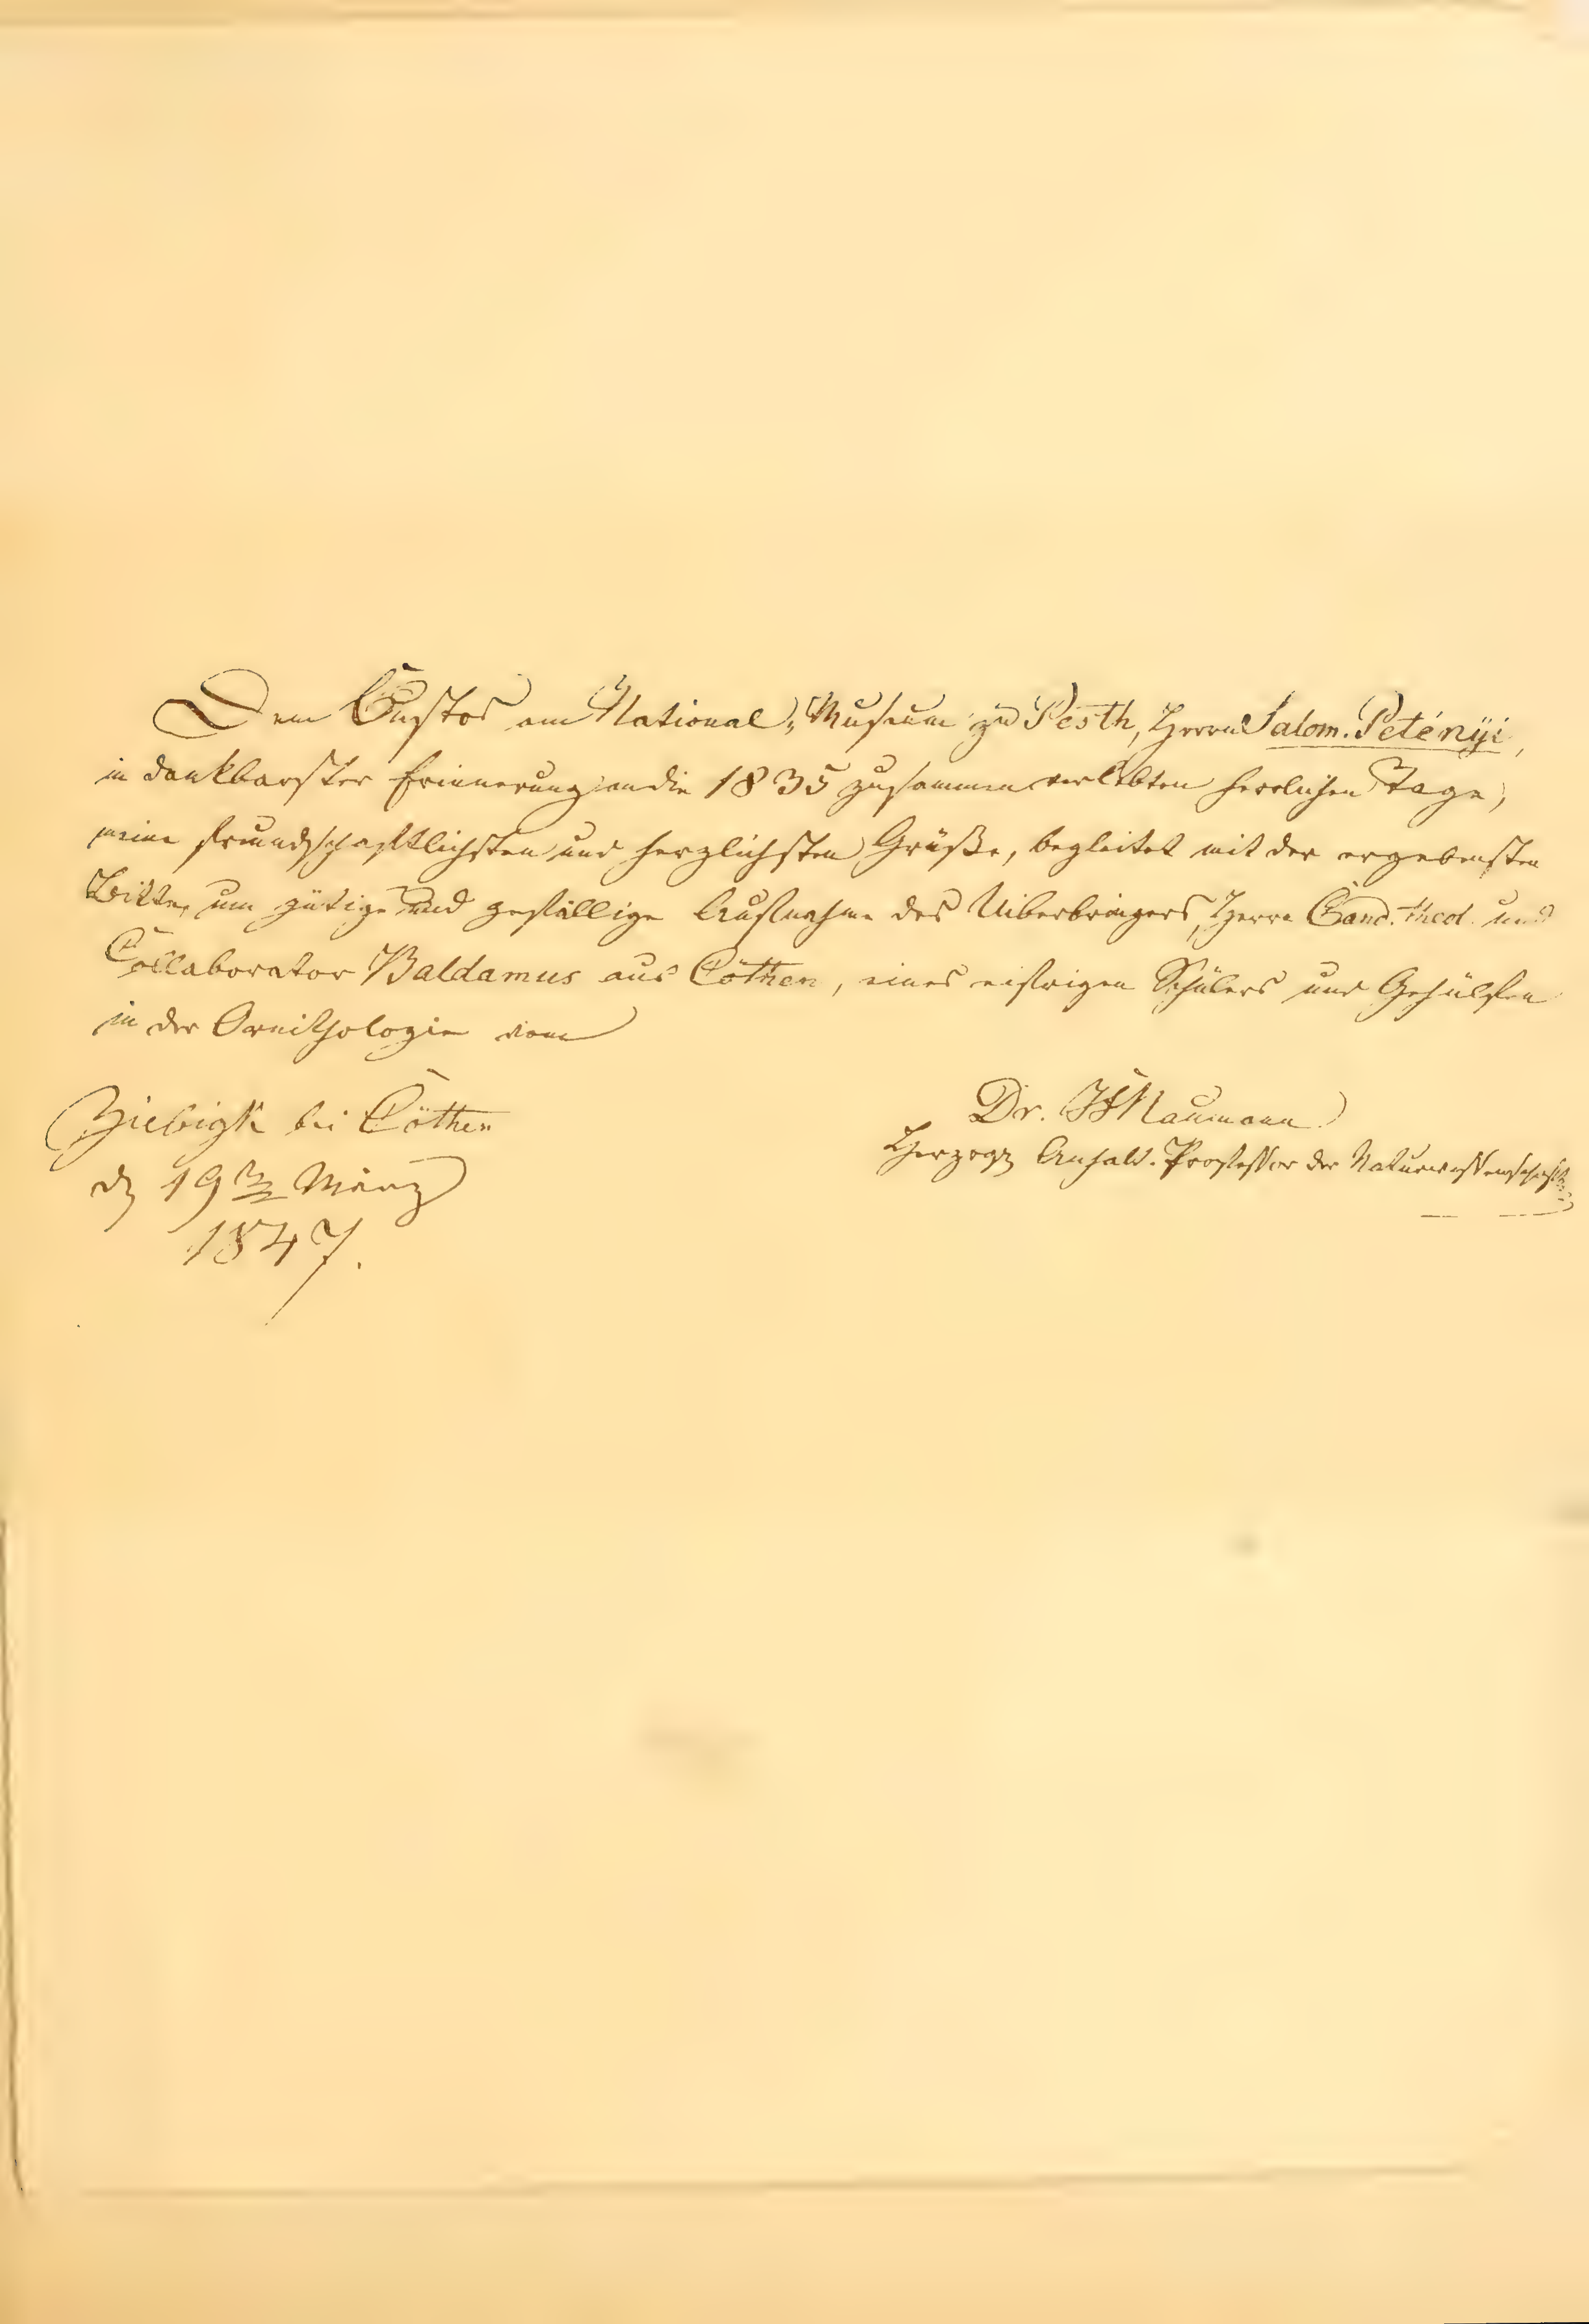 Dem Custos am National-Museum zu Pesth, Herrn Salom. Petényi,
in dankbarster Erinnerung an die 1835 zusammen verlebten herrlichen Tage,
meine freundschaftlichsten und herzlichsten Grüße, begleitet mit der ergebensten
Bitte, um gütige und gefällige Aufnahme des Uiberbringers, Herrn Cand. theol. und
Collaborator Baldamus aus Cöthen, eines eifrigen Schülers und Gehülfen
in der Ornithologie vom
Dr. JFNaumann
Herzogl. Anhalt. Professor der Naturwissenschaft
Ziebigk bei Cöthen
d. 19ten März
1847.